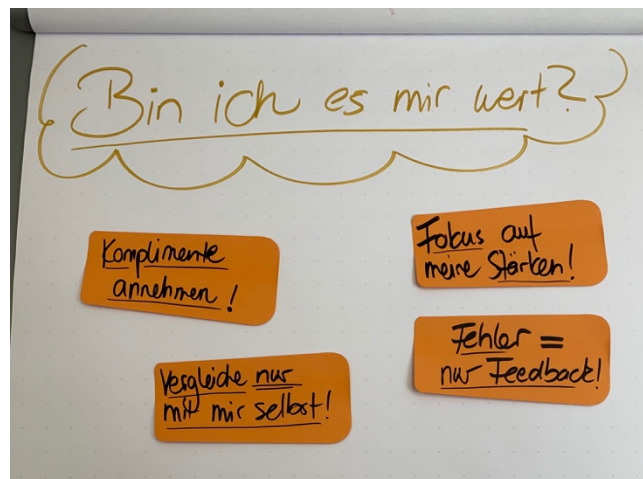 Bin ich es mir wert?
Komplimente
annehmen!
Fokus auf
meine Stärken!
Vergleiche nur
mit mir selbst!
Fehler =
nur Feedback!